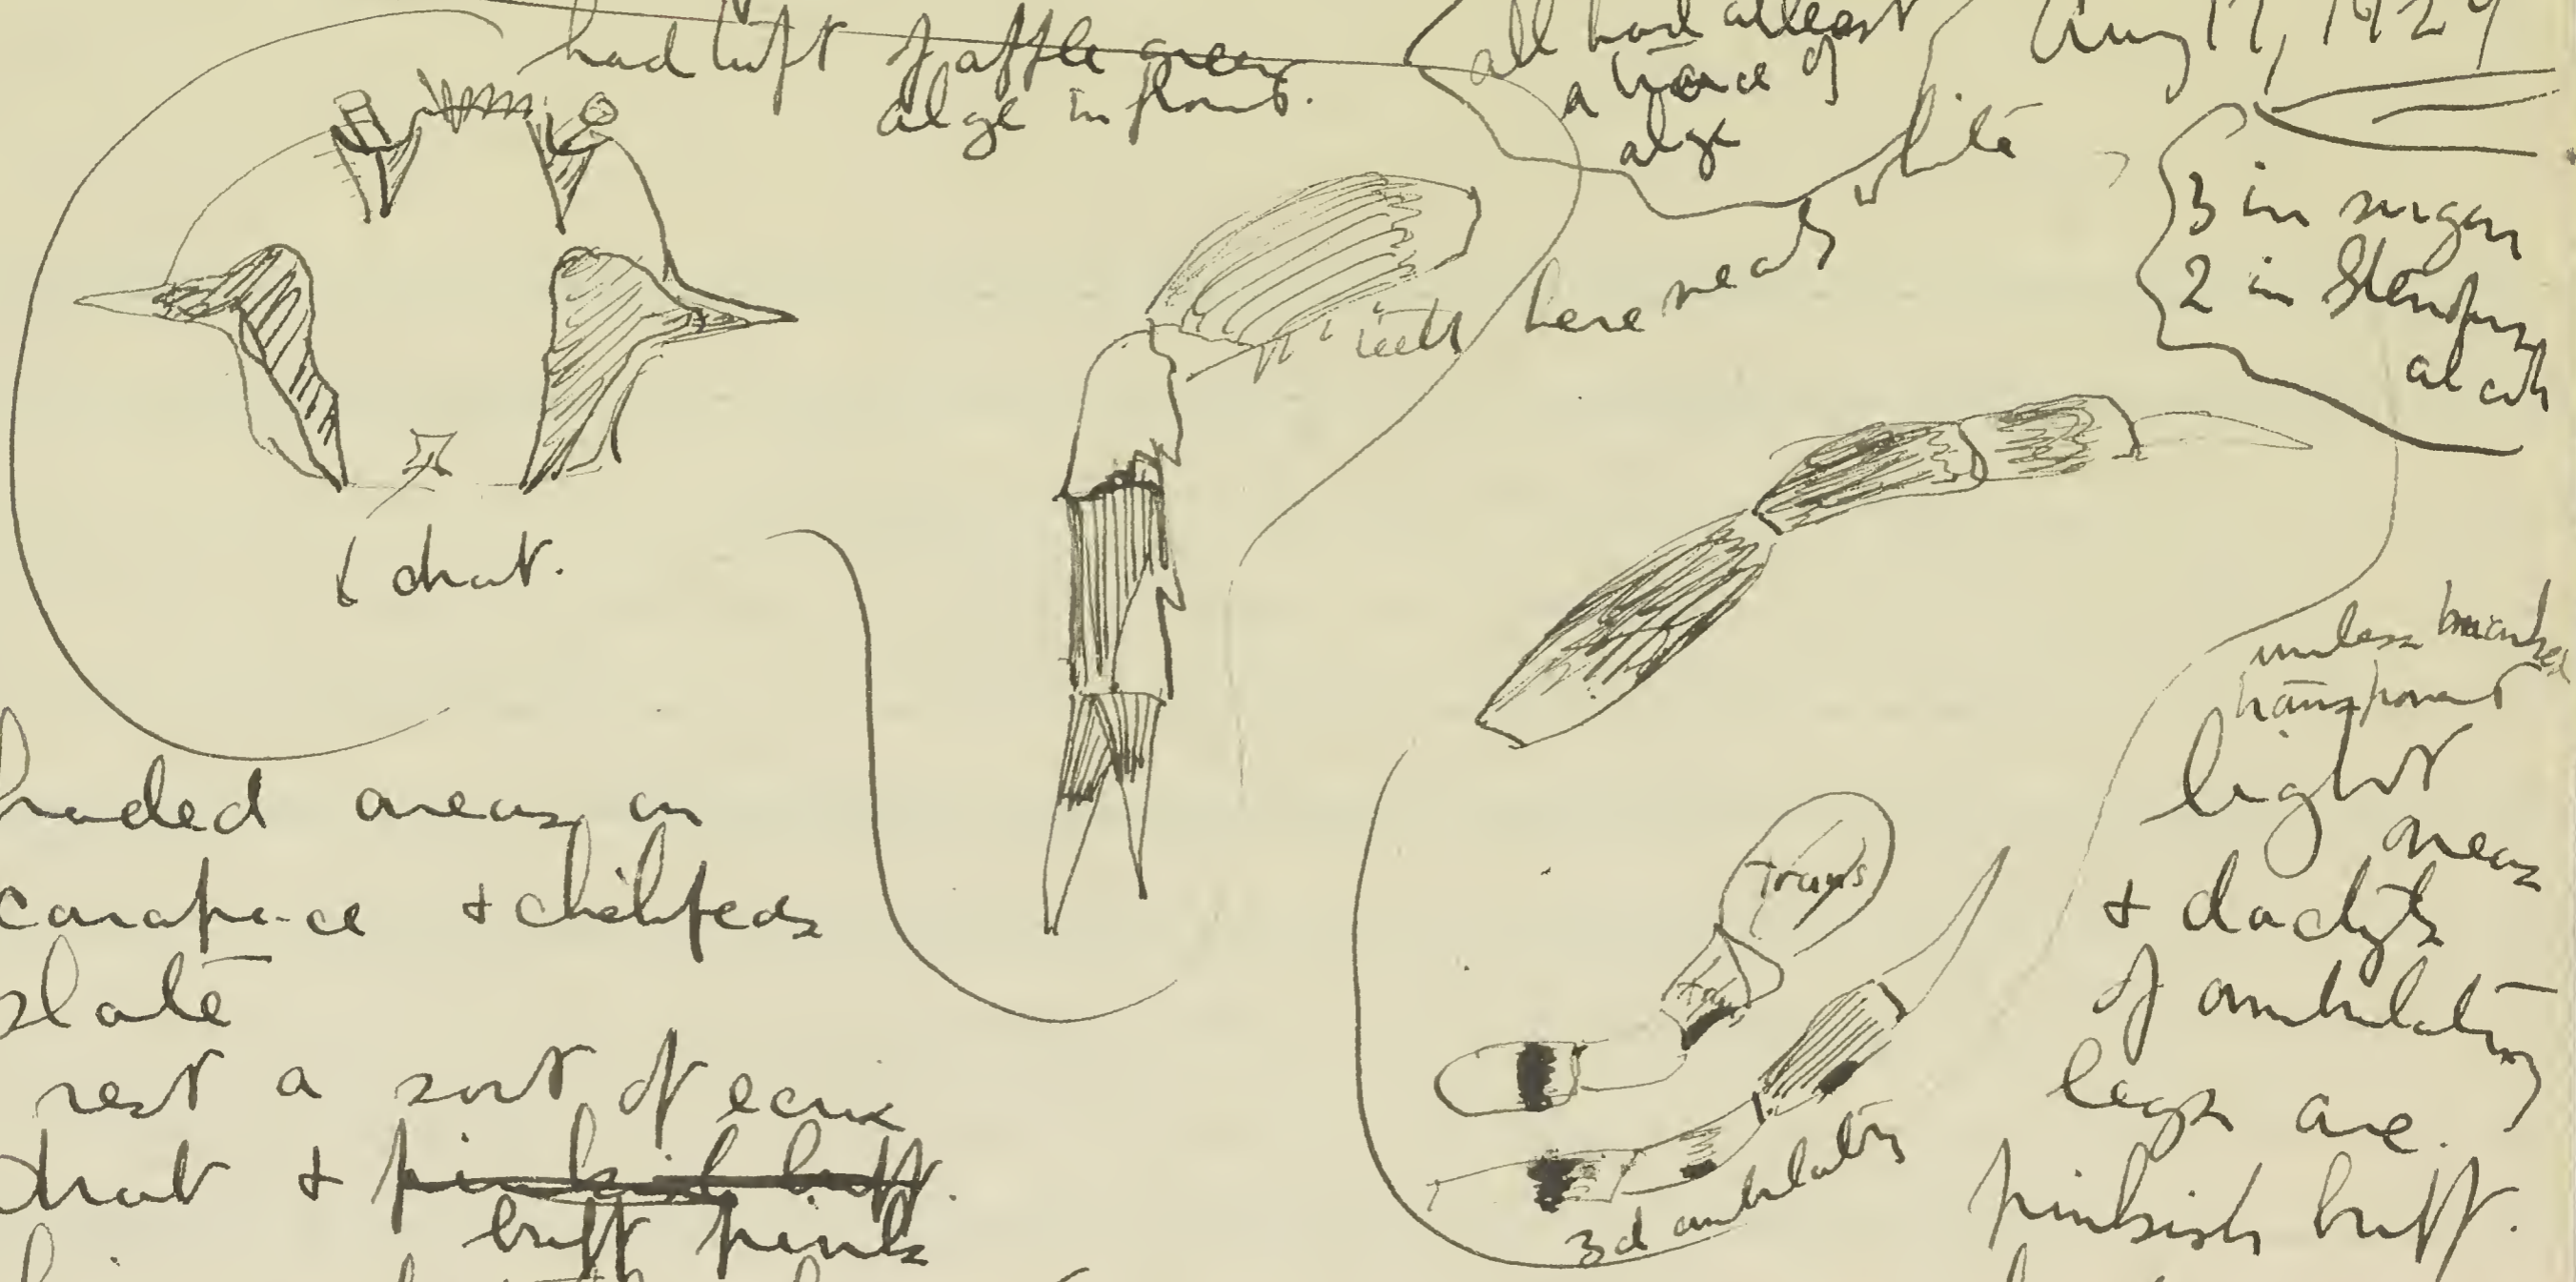 had tuft of apple green
alge in front.
all had atleast
a trace of
alge
Aug 17, 1929
3 in sugar
2 in
alcoh
teeth here nearly white
drab.
unless marked
transparent
light
areas
+ dactyls
of ambulatory
legs are
pinkish buff.
trans
tran
3d ambulatory
haded areas on
carapace + chelipeds
slate
rest a sort of ecru
drab + pinkish buff.
buff pink